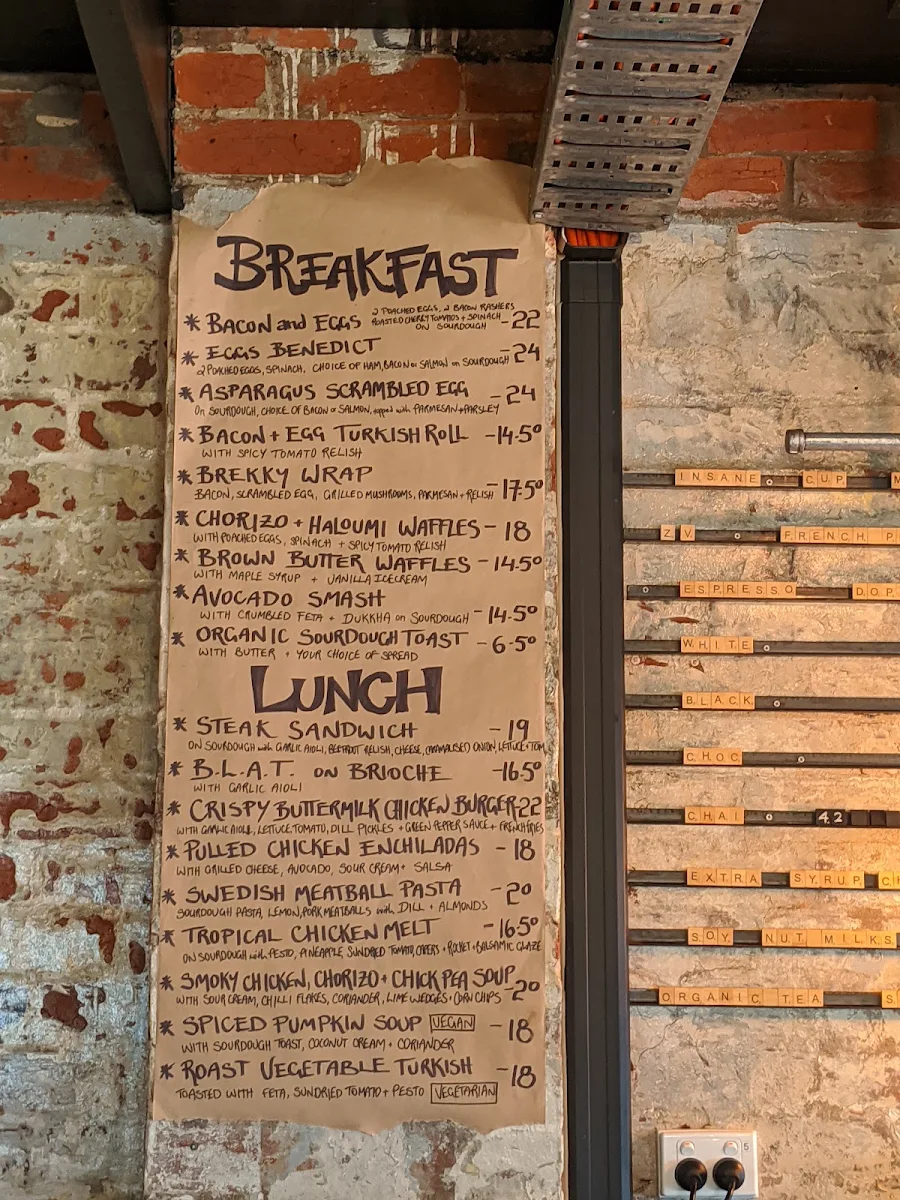 BREAKFAST
* BACON and EGGS 2 POACHED EGGS, 2 BACON RASHERS
ROASTED CHERRY TOMATOS + SPINACH - 22
ON SOURDOUGH
* EGGS BENEDICT - 24
2 POACHED EGGS, SPINACH, CHOICE OF HAM, BACON or SALMON on SOURDOUGH
* ASPARAGUS SCRAMBLED EGG - 24
On SOURDOUGH, CHOICE OF BACON or SALMON, topped with PARMESAN + PARSLEY
* BACON + EGG TURKISH ROLL - 14.50
WITH SPICY TOMATO RELISH
* BREKKY WRAP - 17.50
BACON, SCRAMBLED EGG, GRILLED MUSHROOMS, PARMESAN + RELISH
* CHORIZO + HALOUMI WAFFLES - 18
WITH POACHED EGGS, SPINACH + SPICY TOMATO RELISH
* BROWN BUTTER WAFFLES - 14.50
WITH MAPLE SYRUP + VANILLA ICECREAM
* AVOCADO SMASH - 14.50
WITH CRUMBLED FETA + DUKKHA on SOURDOUGH
* ORGANIC SOURDOUGH TOAST - 6.50
WITH BUTTER + YOUR CHOICE OF SPREAD
LUNCH
* STEAK SANDWICH - 19
ON SOURDOUGH with GARLIC AIOLI, BEETROOT RELISH, CHEESE, CARAMALISED ONION, LETTUCE + TOM
* B.L.A.T. ON BRIOCHE - 16.50
WITH GARLIC AIOLI
* CRISPY BUTTERMILK CHICKEN BURGER 22
WITH GARLIC AIOLI, LETTUCE, TOMATO, DILL PICKLES + GREEN PEPPER SAUCE + FRENCH FRIES
* PULLED CHICKEN ENCHILADAS - 18
WITH GRILLED CHEESE, AVOCADO, SOUR CREAM + SALSA
* SWEDISH MEATBALL PASTA - 20
SOURDOUGH PASTA, LEMON, PORK MEATBALLS with DILL + ALMONDS
* TROPICAL CHICKEN MELT - 16.50
ON SOURDOUGH with PESTO, PINEAPPLE, SUNDRIED TOMATO, CAPERS + ROCKET + BALSAMIC GLAZE
* SMOKY CHICKEN, CHORIZO + CHICK PEA SOUP - 20
WITH SOUR CREAM, CHILLI FLAKES, CORIANDER, LIME WEDGES + CORN CHIPS
* SPICED PUMPKIN SOUP VEGAN - 18
WITH SOURDOUGH TOAST, COCONUT CREAM + CORIANDER
* ROAST VEGETABLE TURKISH - 18
TOASTED WITH FETA, SUNDRIED TOMATO + PESTO VEGETARIAN
INSANE CUP M
Z.V. FRENCH P
ESPRESSO DOP
WHITE
BLACK
CHOC
CHAI 42
EXTRA SYRUP CH
SOY NUT MILKS
ORGANIC TEA S
5